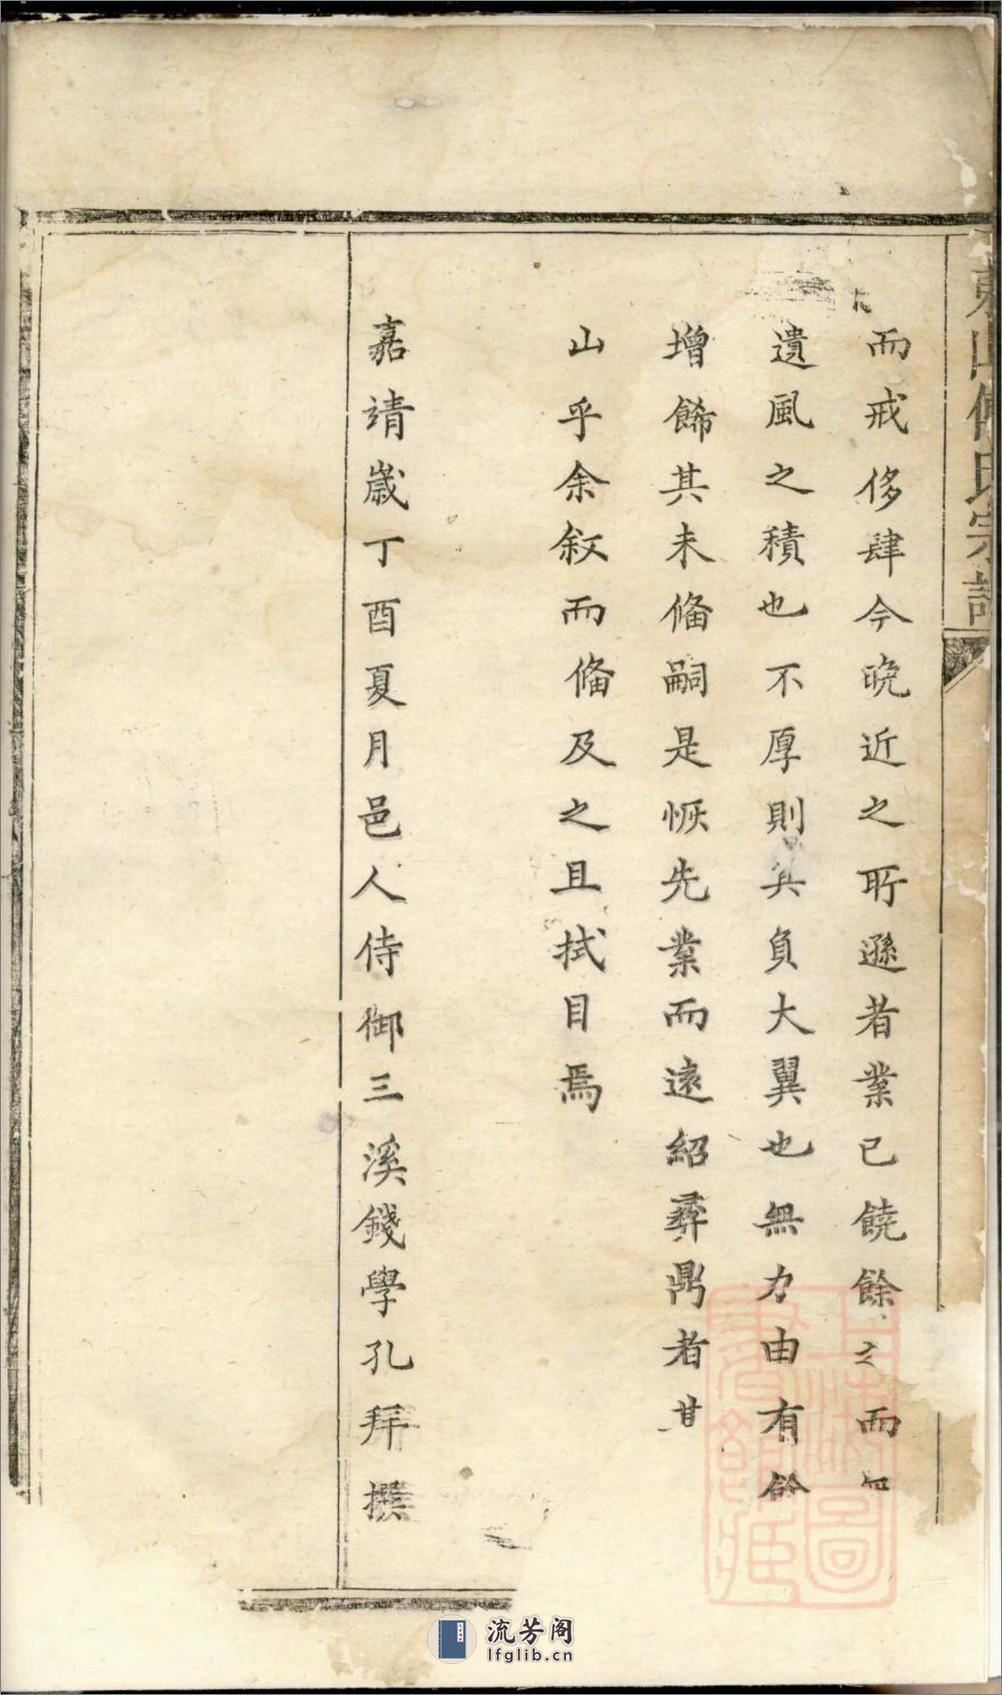 東山傅氏宗譜
而戒侈肆今晚近之所遜者業已饒餘之而
遺風之積也不厚則其負大翼也無力由有
增餙其未俻嗣是恢先業而遠紹彞鼎者
山乎余叙而俻及之且拭目焉
嘉靖歲丁酉夏月邑人侍御三溪錢學孔拜撰
上海圖書館藏
流芳阁
lfglib.cn